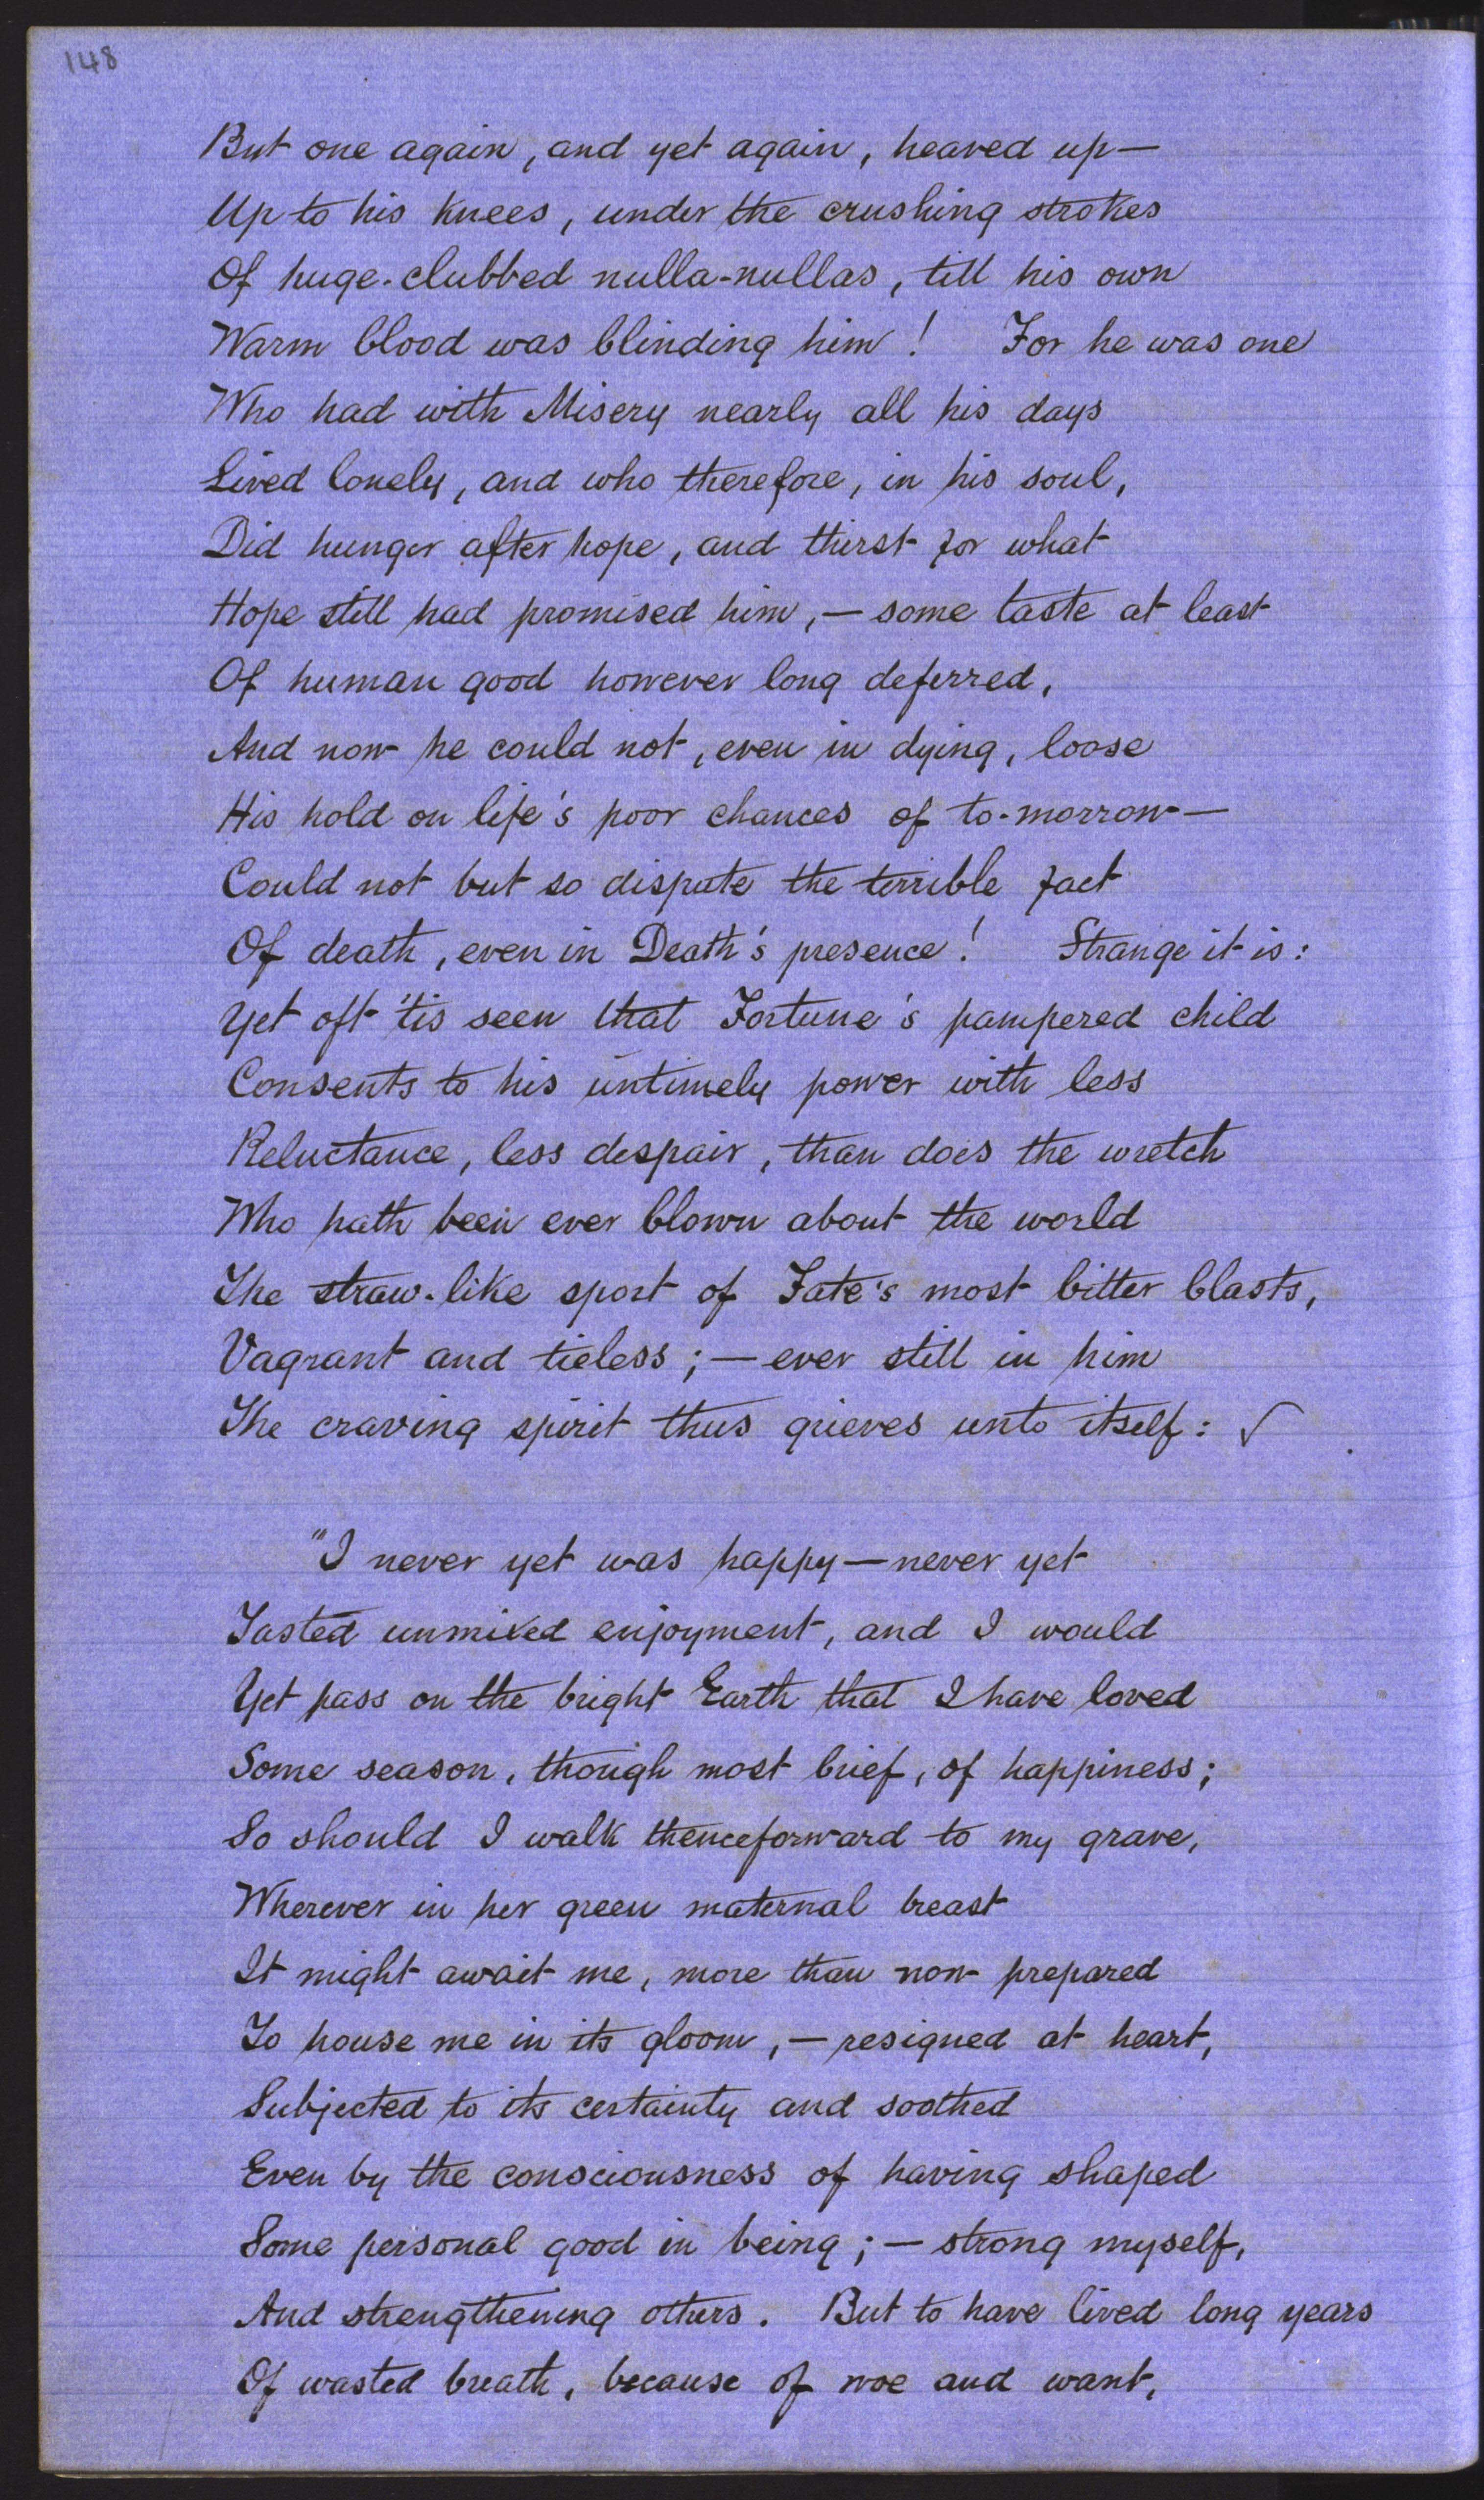 148
But one again, and yet again, heaved up—
Up to his knees, under the crushing strokes
Of huge-clubbed nulla-nullas, till his own
Warm blood was blinding him! For he was one
Who had with Misery nearly all his days
Lived lonely, and who therefore, in his soul,
Did hunger after hope, and thirst for what
Hope still had promised him,—some taste at least
Of human good however long deferred,
And now he could not, even in dying, loose
His hold on life's poor chances of to-morrow—
Could not but so dispute the terrible fact
Of death, even in Death's presence! Strange it is:
Yet oft 'tis seen that Fortune's pampered child
Consents to his untimely power with less
Reluctance, less despair, than does the wretch
Who hath been ever blown about the world
The straw-like sport of Fate's most bitter blasts,
Vagrant and tieless;—ever still in him
The craving spirit thus grieves unto itself: ✓
"I never yet was happy—never yet
Tasted unmixed enjoyment, and I would
Yet pass on the bright Earth that I have loved
Some season, though most brief, of happiness;
So should I walk thenceforward to my grave,
Wherever in her green maternal breast
It might await me, more than now prepared
To house me in its gloom,—resigned at heart,
Subjected to its certainty and soothed
Even by the consciousness of having shaped
Some personal good in being;—strong myself,
And strengthening others. But to have lived long years
Of wasted breath, because of woe and want,